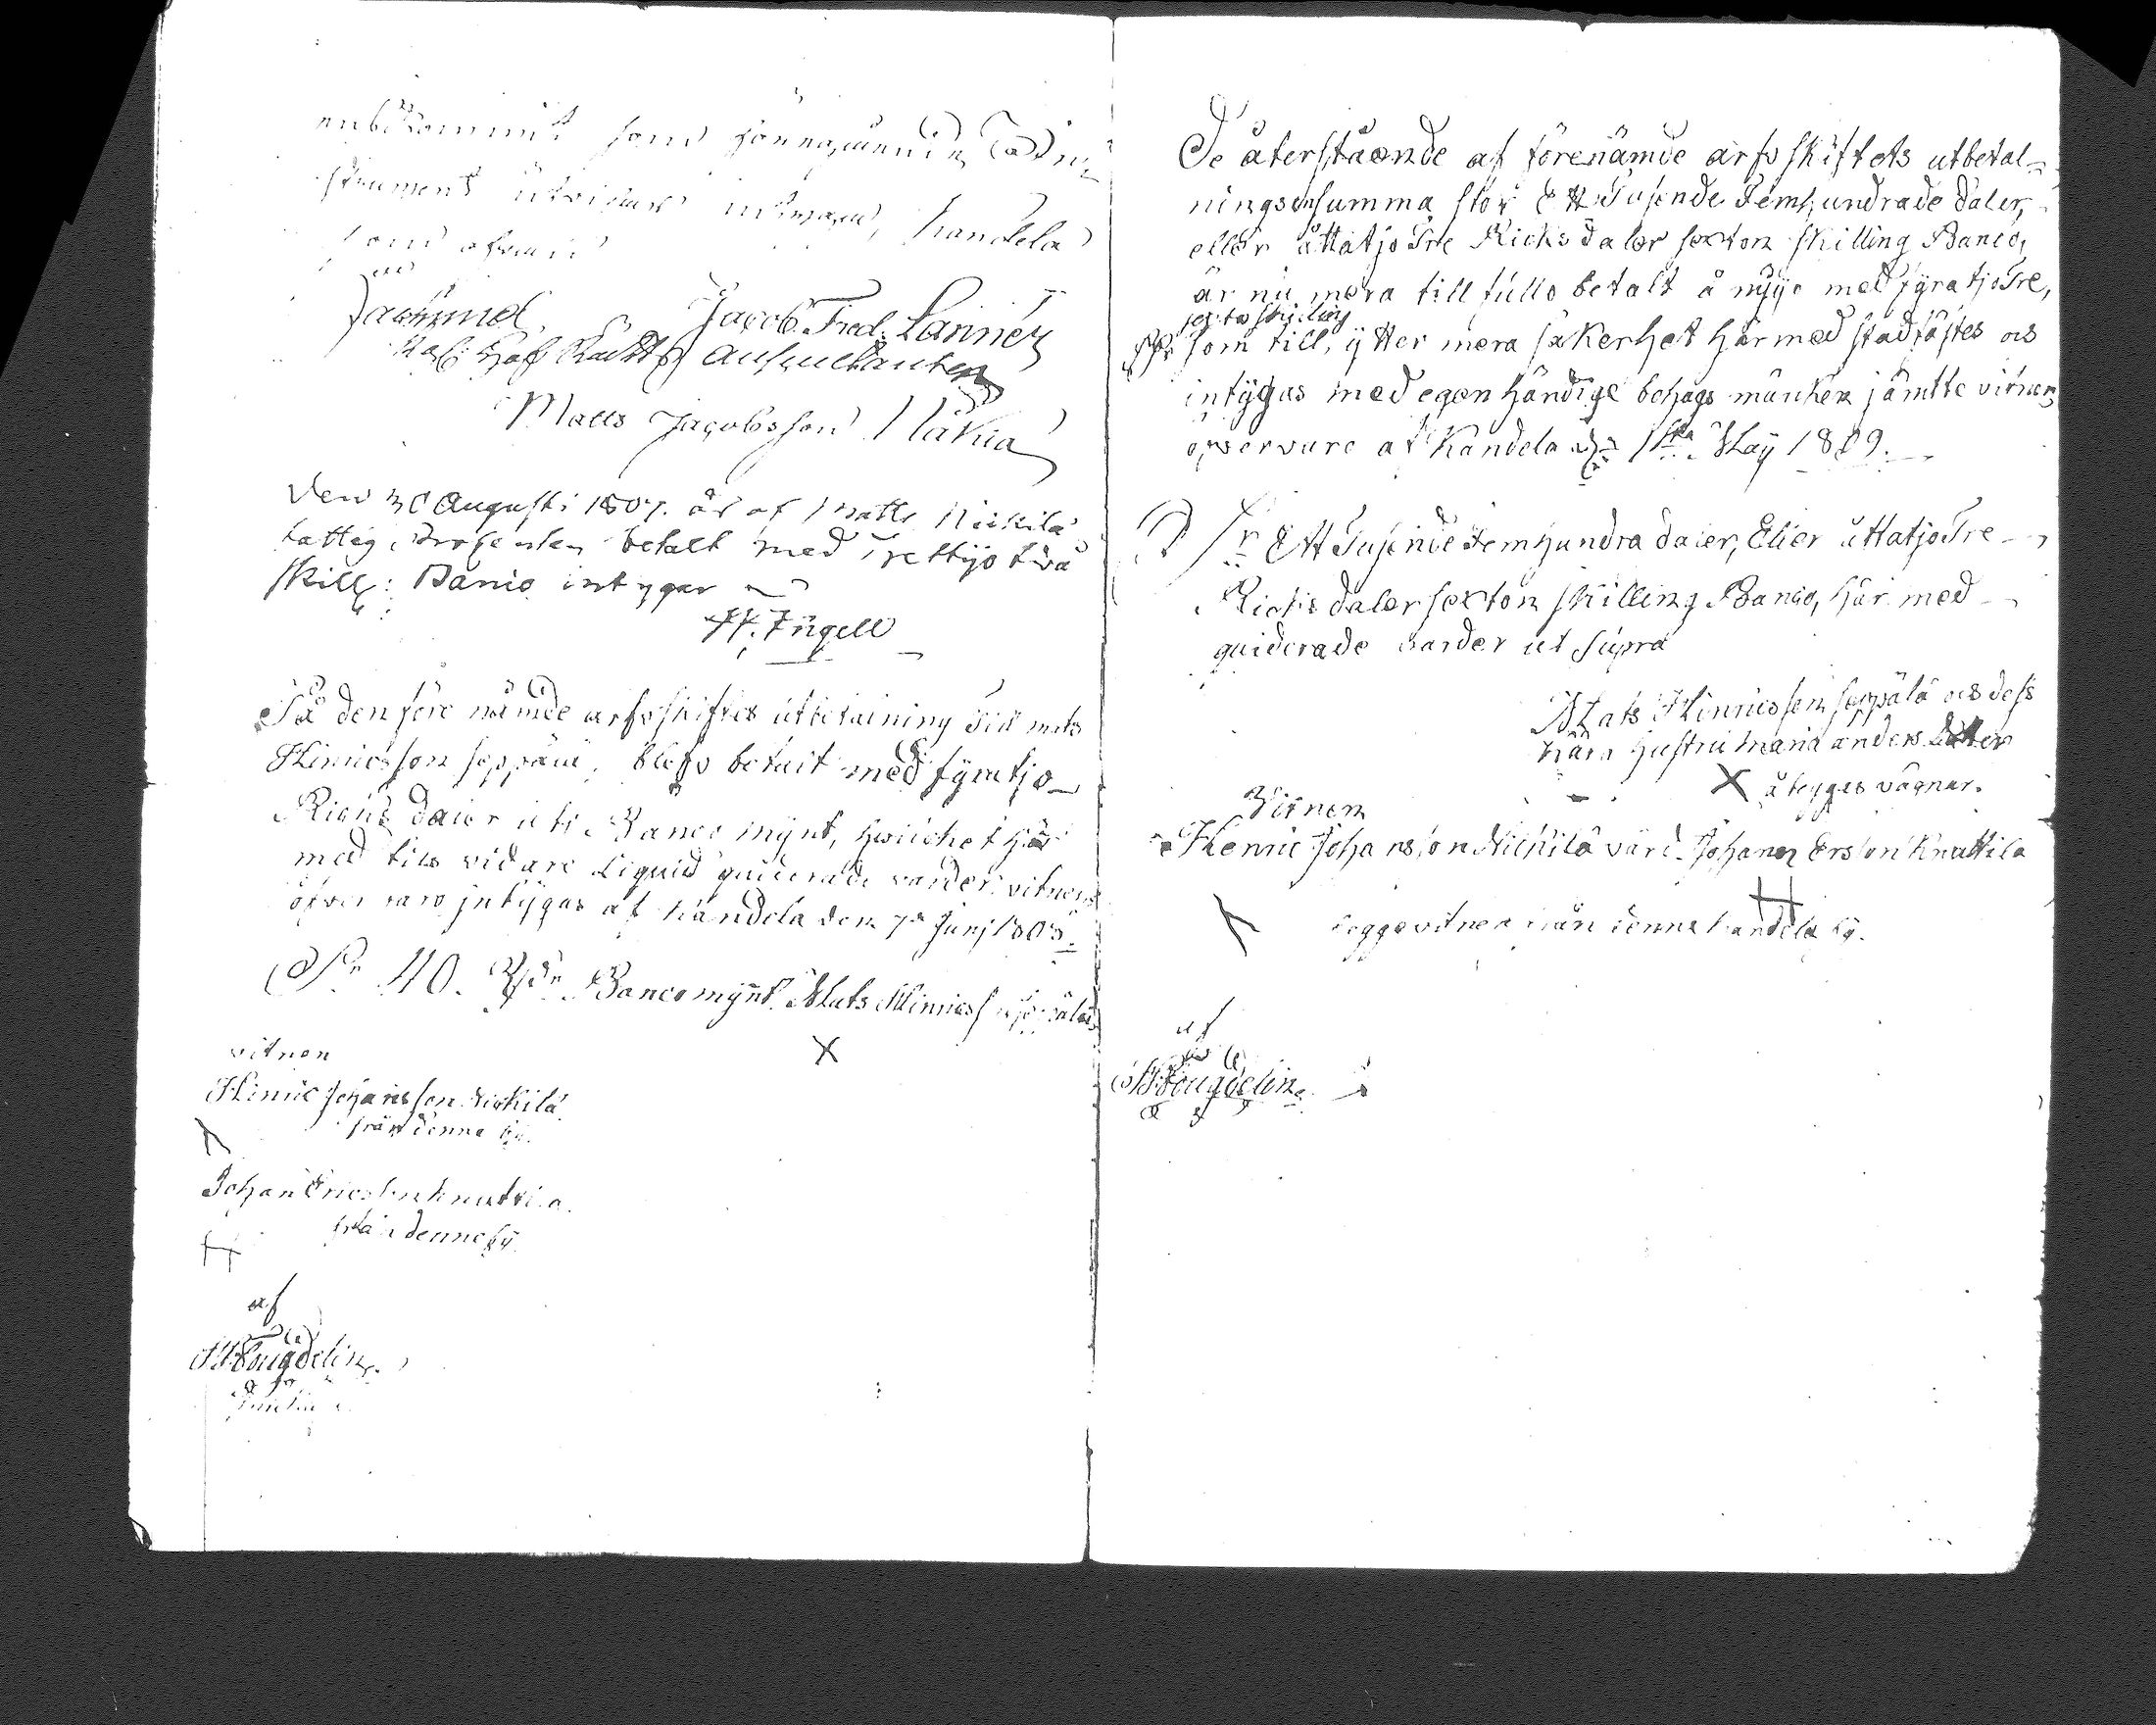 som
strument utvisar intygar, Kandela
som ofvan
Jacob Fred. Lannér
Auscultanten
Matts Jacobsson
Den 30 Augusti 1807. är af Matts Nickilä
fattig Prosenten betalt med Trettijo två
Skill: Banco intygar
H. Engell
På den före nämde arfvskiftes utbetalning Til mats
Hinricsson seppälä, blefv betalt med fyratjo
Ricks daler uti Banco mynt, hwilchet här
med tils vidare Liquid quiderade varder vitnens
öfver varo intygas af Kandela den 7de Junj 1808.
Sr 40. Rdr Banco mynt. Mats Hinricsson seppälä
X
vitnen
Hinric Johansson Nickilä
från denne by.
Johan Ericsson Knuttila.
från denne by
af
De återstående af förenämde arfvskiftets utbetal-
ningsensumma stor Ett Tusende Femhundrade daler,
eller åttatjo Tre Ricksdaler sexton skilling Banco,
är nu mera till fullo betalt å nyye med fyratjo Tre,
sexton skilling
som till, ytter mera säkerhet här med stadfästes och
intygas med egenhändige bohags märken jämtte vitnens
öfvervaro af Kandela d. 1sta May 1809.
Sr Ett Tusende Femhundra daler, Eller åttatjo Tre
Ricksdaler sexton skilling Banco, här med
quiderade varder ut supra
Mats Hinricsson seppälä och dess
kära hustru maria anders dotter
X å begges vägnar.
Vitnen
Henric Johansson Nickilä värd. Johan Ersson Knuttila
begge vitnen från denne Kandela by.
af